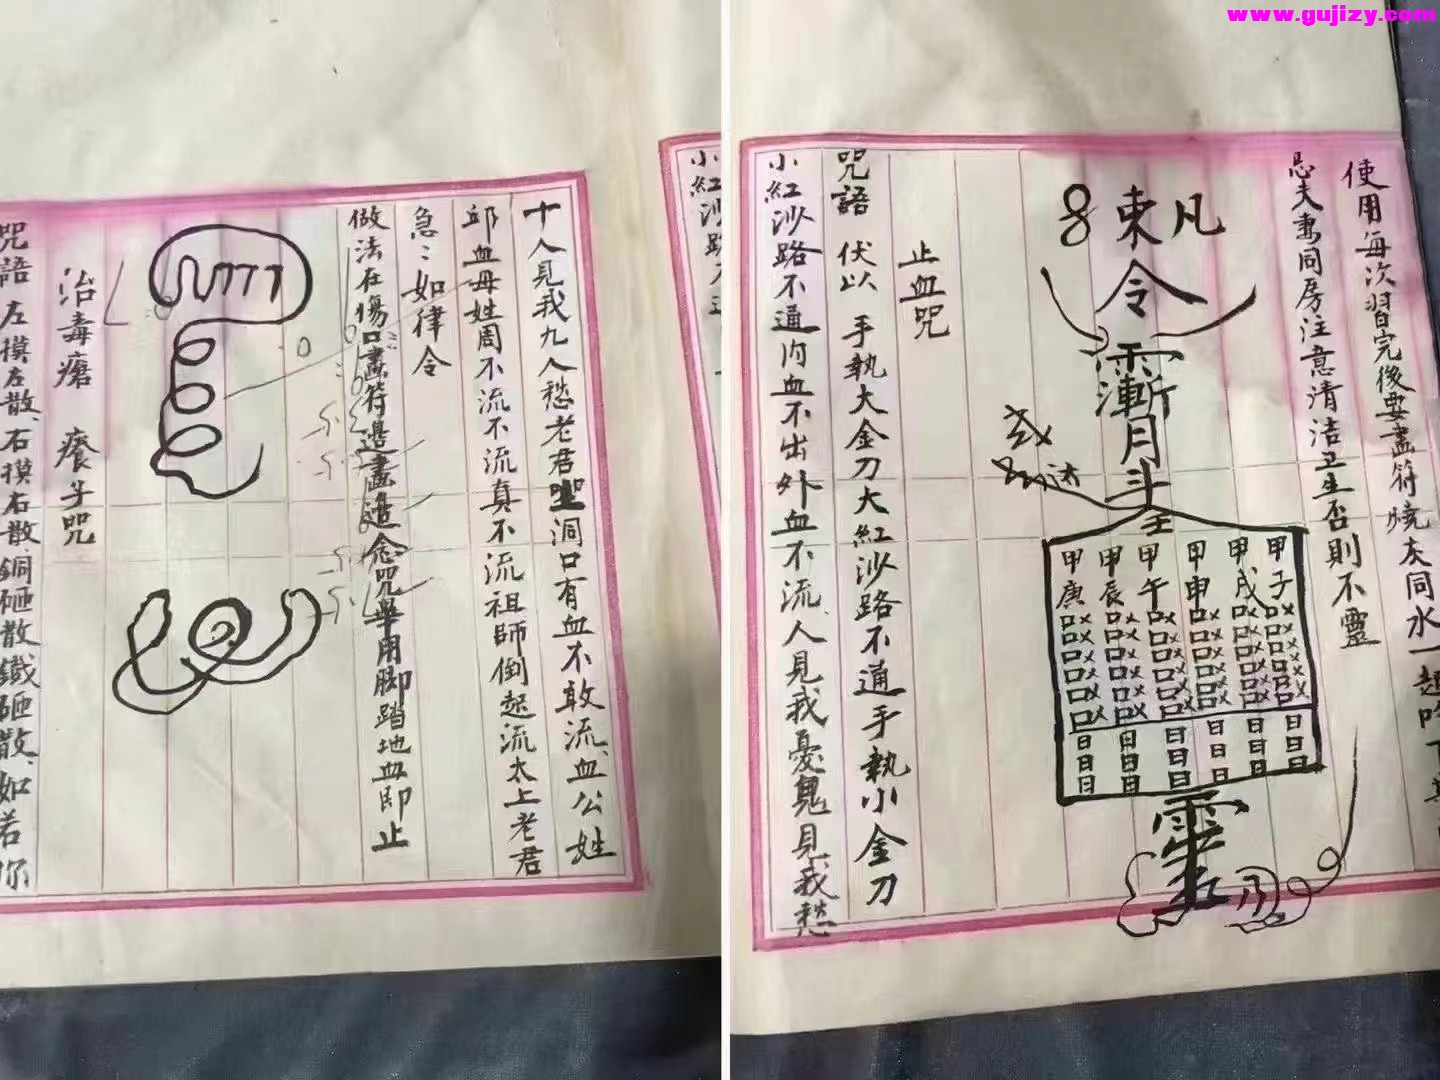 www.gujizy.com
使用每次習完後要畫符燒灰同水一起吟下
忌夫妻同房注意清洁卫生否則不靈
8 東凡
令
斗
甲子
甲戌
甲申
甲午
甲辰
甲庚
口口口口口
日日日
靈
止血咒
咒語 伏以 手執大金刀大紅沙路不通手執小金刀
小紅沙路不通內血不出外血不流、人見我憂鬼見我愁
小紅沙路不通
十人見我九人愁老君坐洞口有血不敢流、血公姓
邱血母姓周不流不流真不流祖師倒起流太上老君
急:如律令
做法在傷口畫符邊畫邊念咒畢用脚踏地血即止
治毒瘡 癢子咒
咒語 左摸左散、右摸右散、銅砸散鐵砸散、如若你